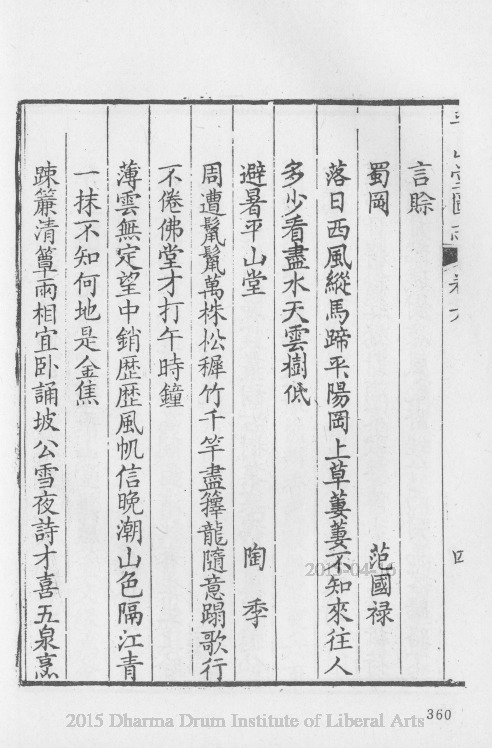 言賒
蜀岡 范國祿
落日西風縱馬蹄平陽岡上草萋萋不知來往人
多少看盡水天雲樹低
避暑平山堂 陶季
周遭鬣鬣萬株松穉竹千竿盡籜龍隨意蹋歌行
不倦佛堂才打午時鐘
薄雲無定望中銷歷歷風帆信晚潮山色隔江青
一抹不知何地是金焦
疎簾清簟兩相宜臥誦坡公雪夜詩才喜五泉烹
360
2015 Dharma Drum Institute of Liberal Arts